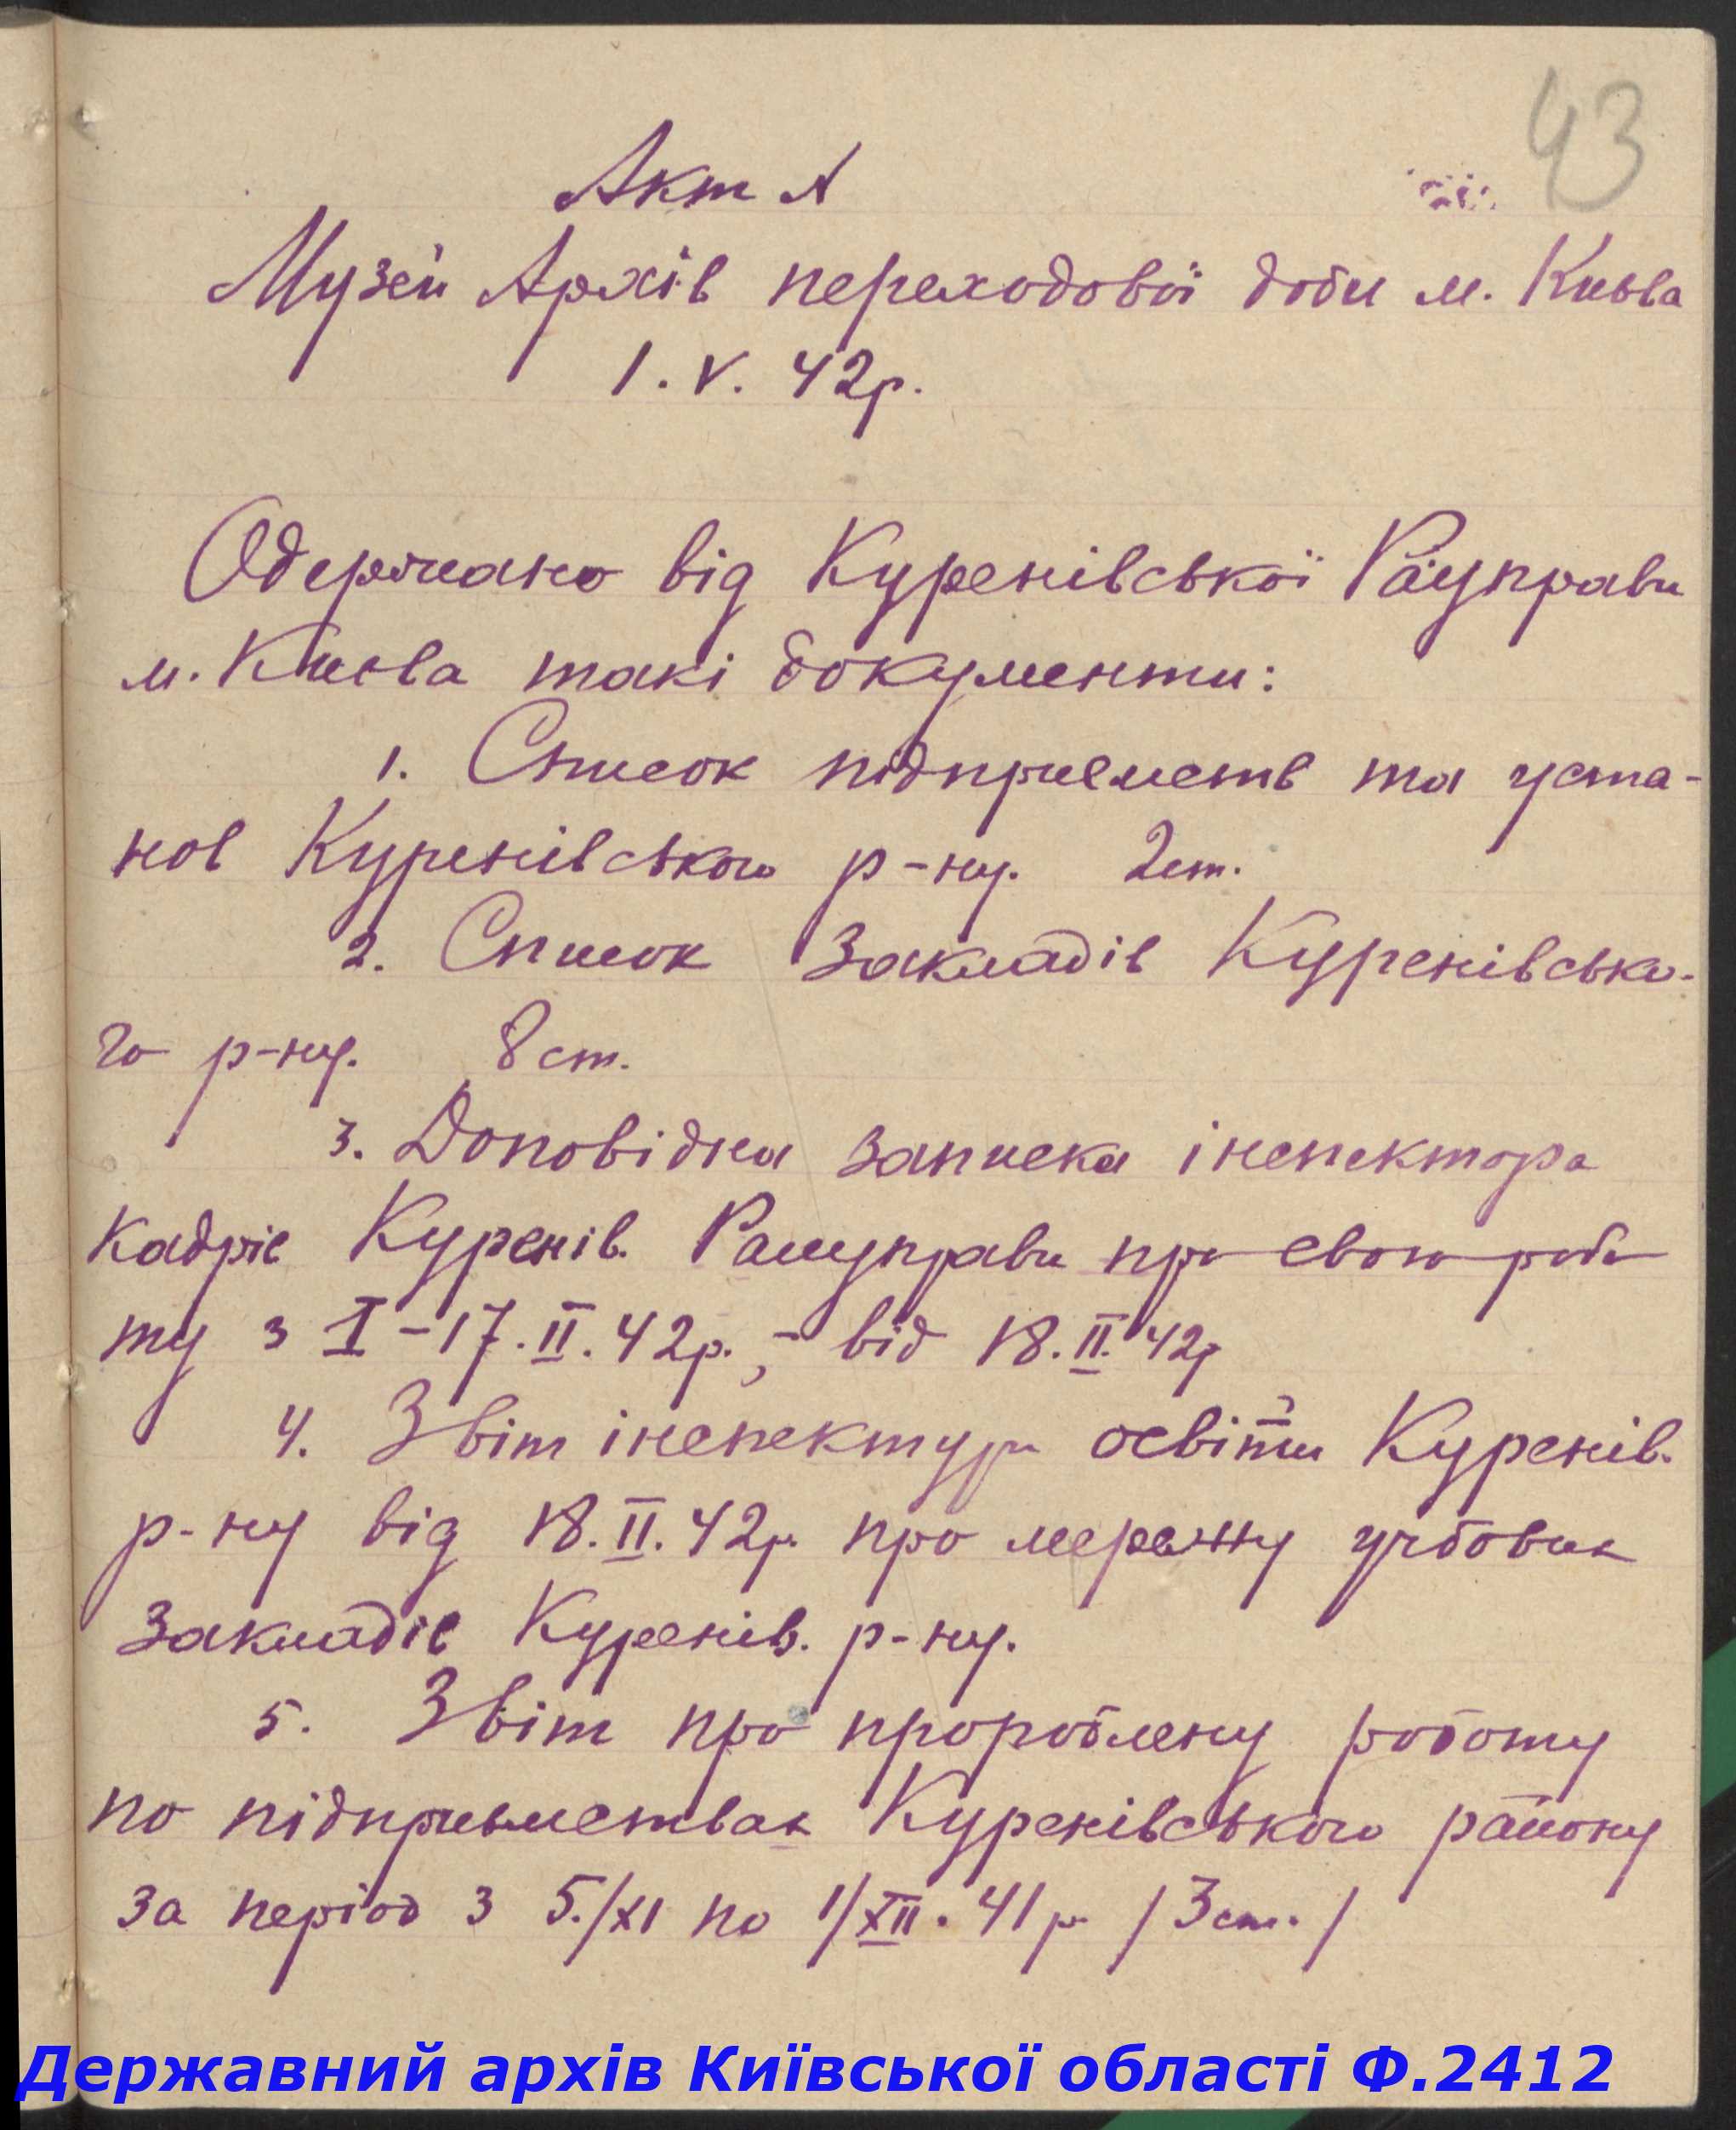 43
Акт №
Музей Архів переходової доби м. Києва
1. V. 42р.
Одержано від Куренівської Райуправи
м. Києва такі документи:
1. Список підприємств та уста-
нов Куренівського р-ну. 2 ст.
2. Список закладів Куренівсько-
го р-ну. 8 ст.
3. Доповідна записка інспектора
кадрів Куренів. Райуправи про свою робо
ту з I-17.II.42р., - від 18.II.42р
4. Звіт інспектури освіти Куренів.
р-ну від 18.II.42р. про мережу учбових
закладів Куренів. р-ну.
5. Звіт про пророблену роботу
по підприємствах Куренівського району
за період з 5./XI по 1/XII. 41 р. /3 ст./
Державний архів Київської області Ф.2412